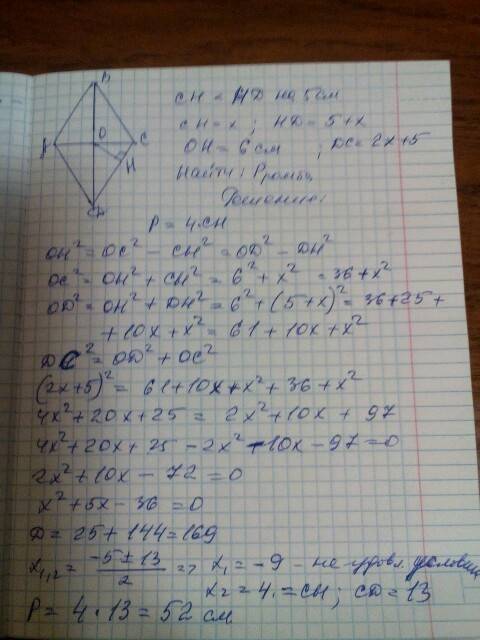 B
A
O
C
H
D
CH < HD на 5 см
CH = x ; HD = 5+x
OH = 6 см ; DC = 2x+5
Найти: Pромба
Решение:
P = 4·CH
OH² = OC² - CH² = OD² - DH²
OC² = OH² + CH² = 6² + x² = 36 + x²
OD² = OH² + DH² = 6² + (5+x)² = 36+25+
+10x+x² = 61 + 10x + x²
DC² = OD² + OC²
(2x+5)² = 61+10x+x² + 36 + x²
4x² + 20x + 25 = 2x² + 10x + 97
4x² + 20x + 25 - 2x² - 10x - 97 = 0
2x² + 10x - 72 = 0
x² + 5x - 36 = 0
D = 25 + 144 = 169
x₁,₂ = (-5 ± 13)/2 => x₁ = -9 - не удовл. условию
x₂ = 4 = CH ; CD = 13
P = 4 · 13 = 52 см